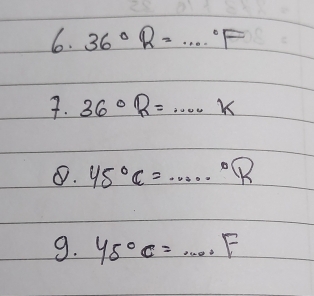 6. 36° R = .... °F
7. 36° R = ..... K
8. 45°C = ...... °R
9. 45°C = ..... F